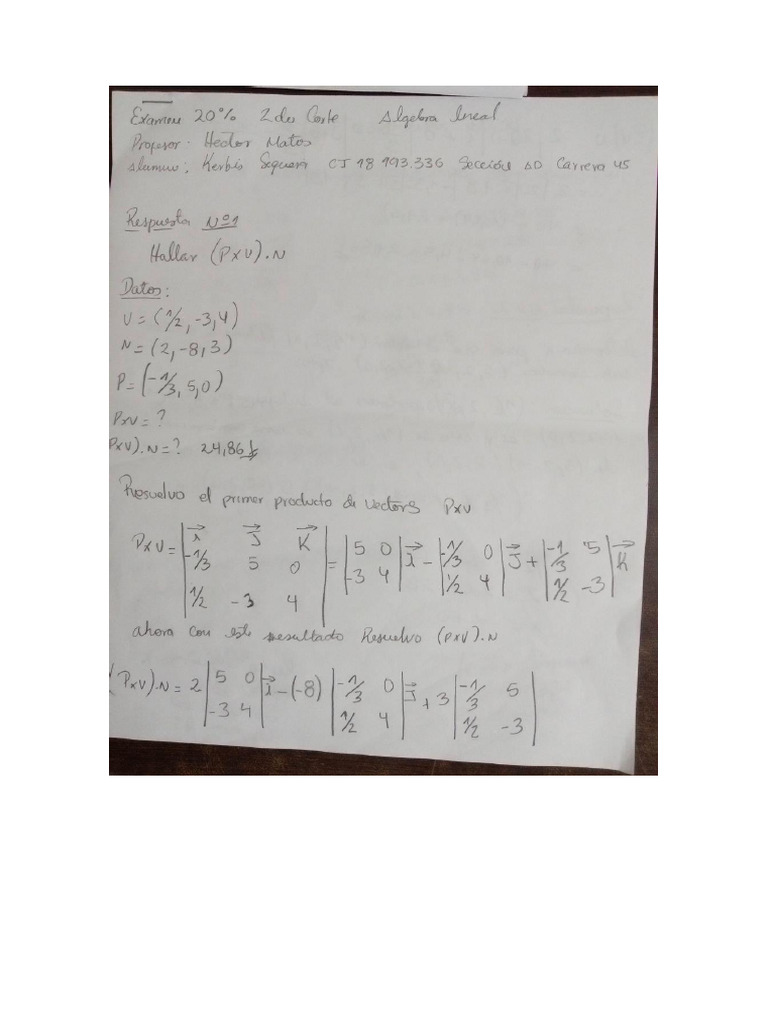 Examen 20% 2do Corte Algebra lineal
Profesor: Hector Matos
Alumno: Kerbis Sequera CI 18 193.336 Sección AD Carrera 45
Respuesta Nº1
Hallar (PxV).N
Datos:
V=(1/2, -3,4)
N=(2,-8,3)
P=(-1/3, 5,0)
PxV=?
PxV).N=? 24,86
Resuelvo el primer producto de vectors PxV
PxV= |i J K; -1/3 5 0; 1/2 -3 4| = |5 0; -3 4| i - |-1/3 0; 1/2 4| J + |-1/3 5; 1/2 -3| K
ahora con este resultado Resuelvo (PxV).N
(PxV).N = 2 |5 0; -3 4| i -(-8) |-1/3 0; 1/2 4| J + 3 |-1/3 5; 1/2 -3|